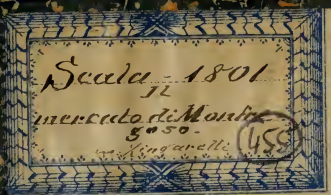 Scala - 1801
Il
mercato di Monfre-
goso -
Zingarelli
455